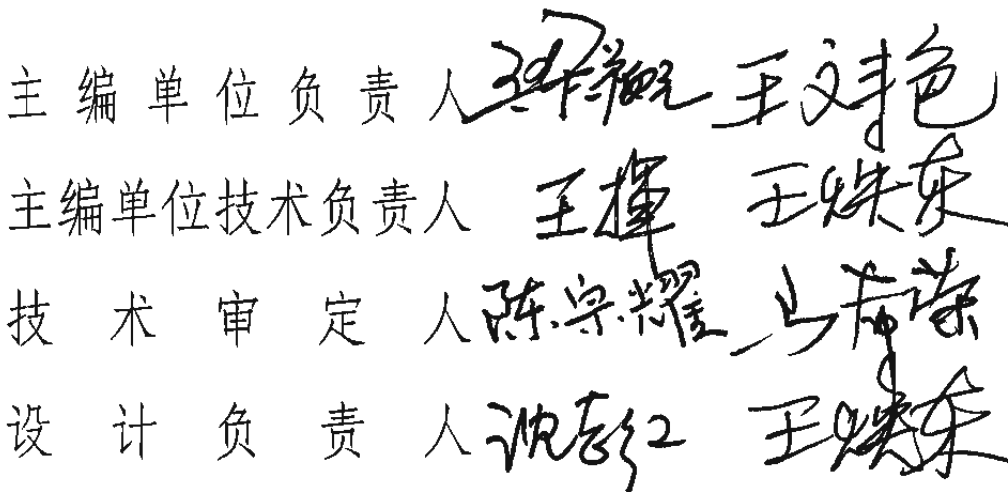 主编单位负责人 王文艳
主编单位技术负责人 王挥 王焕东
技术审定人 陈宗耀
设计负责人 沈志红 王焕东